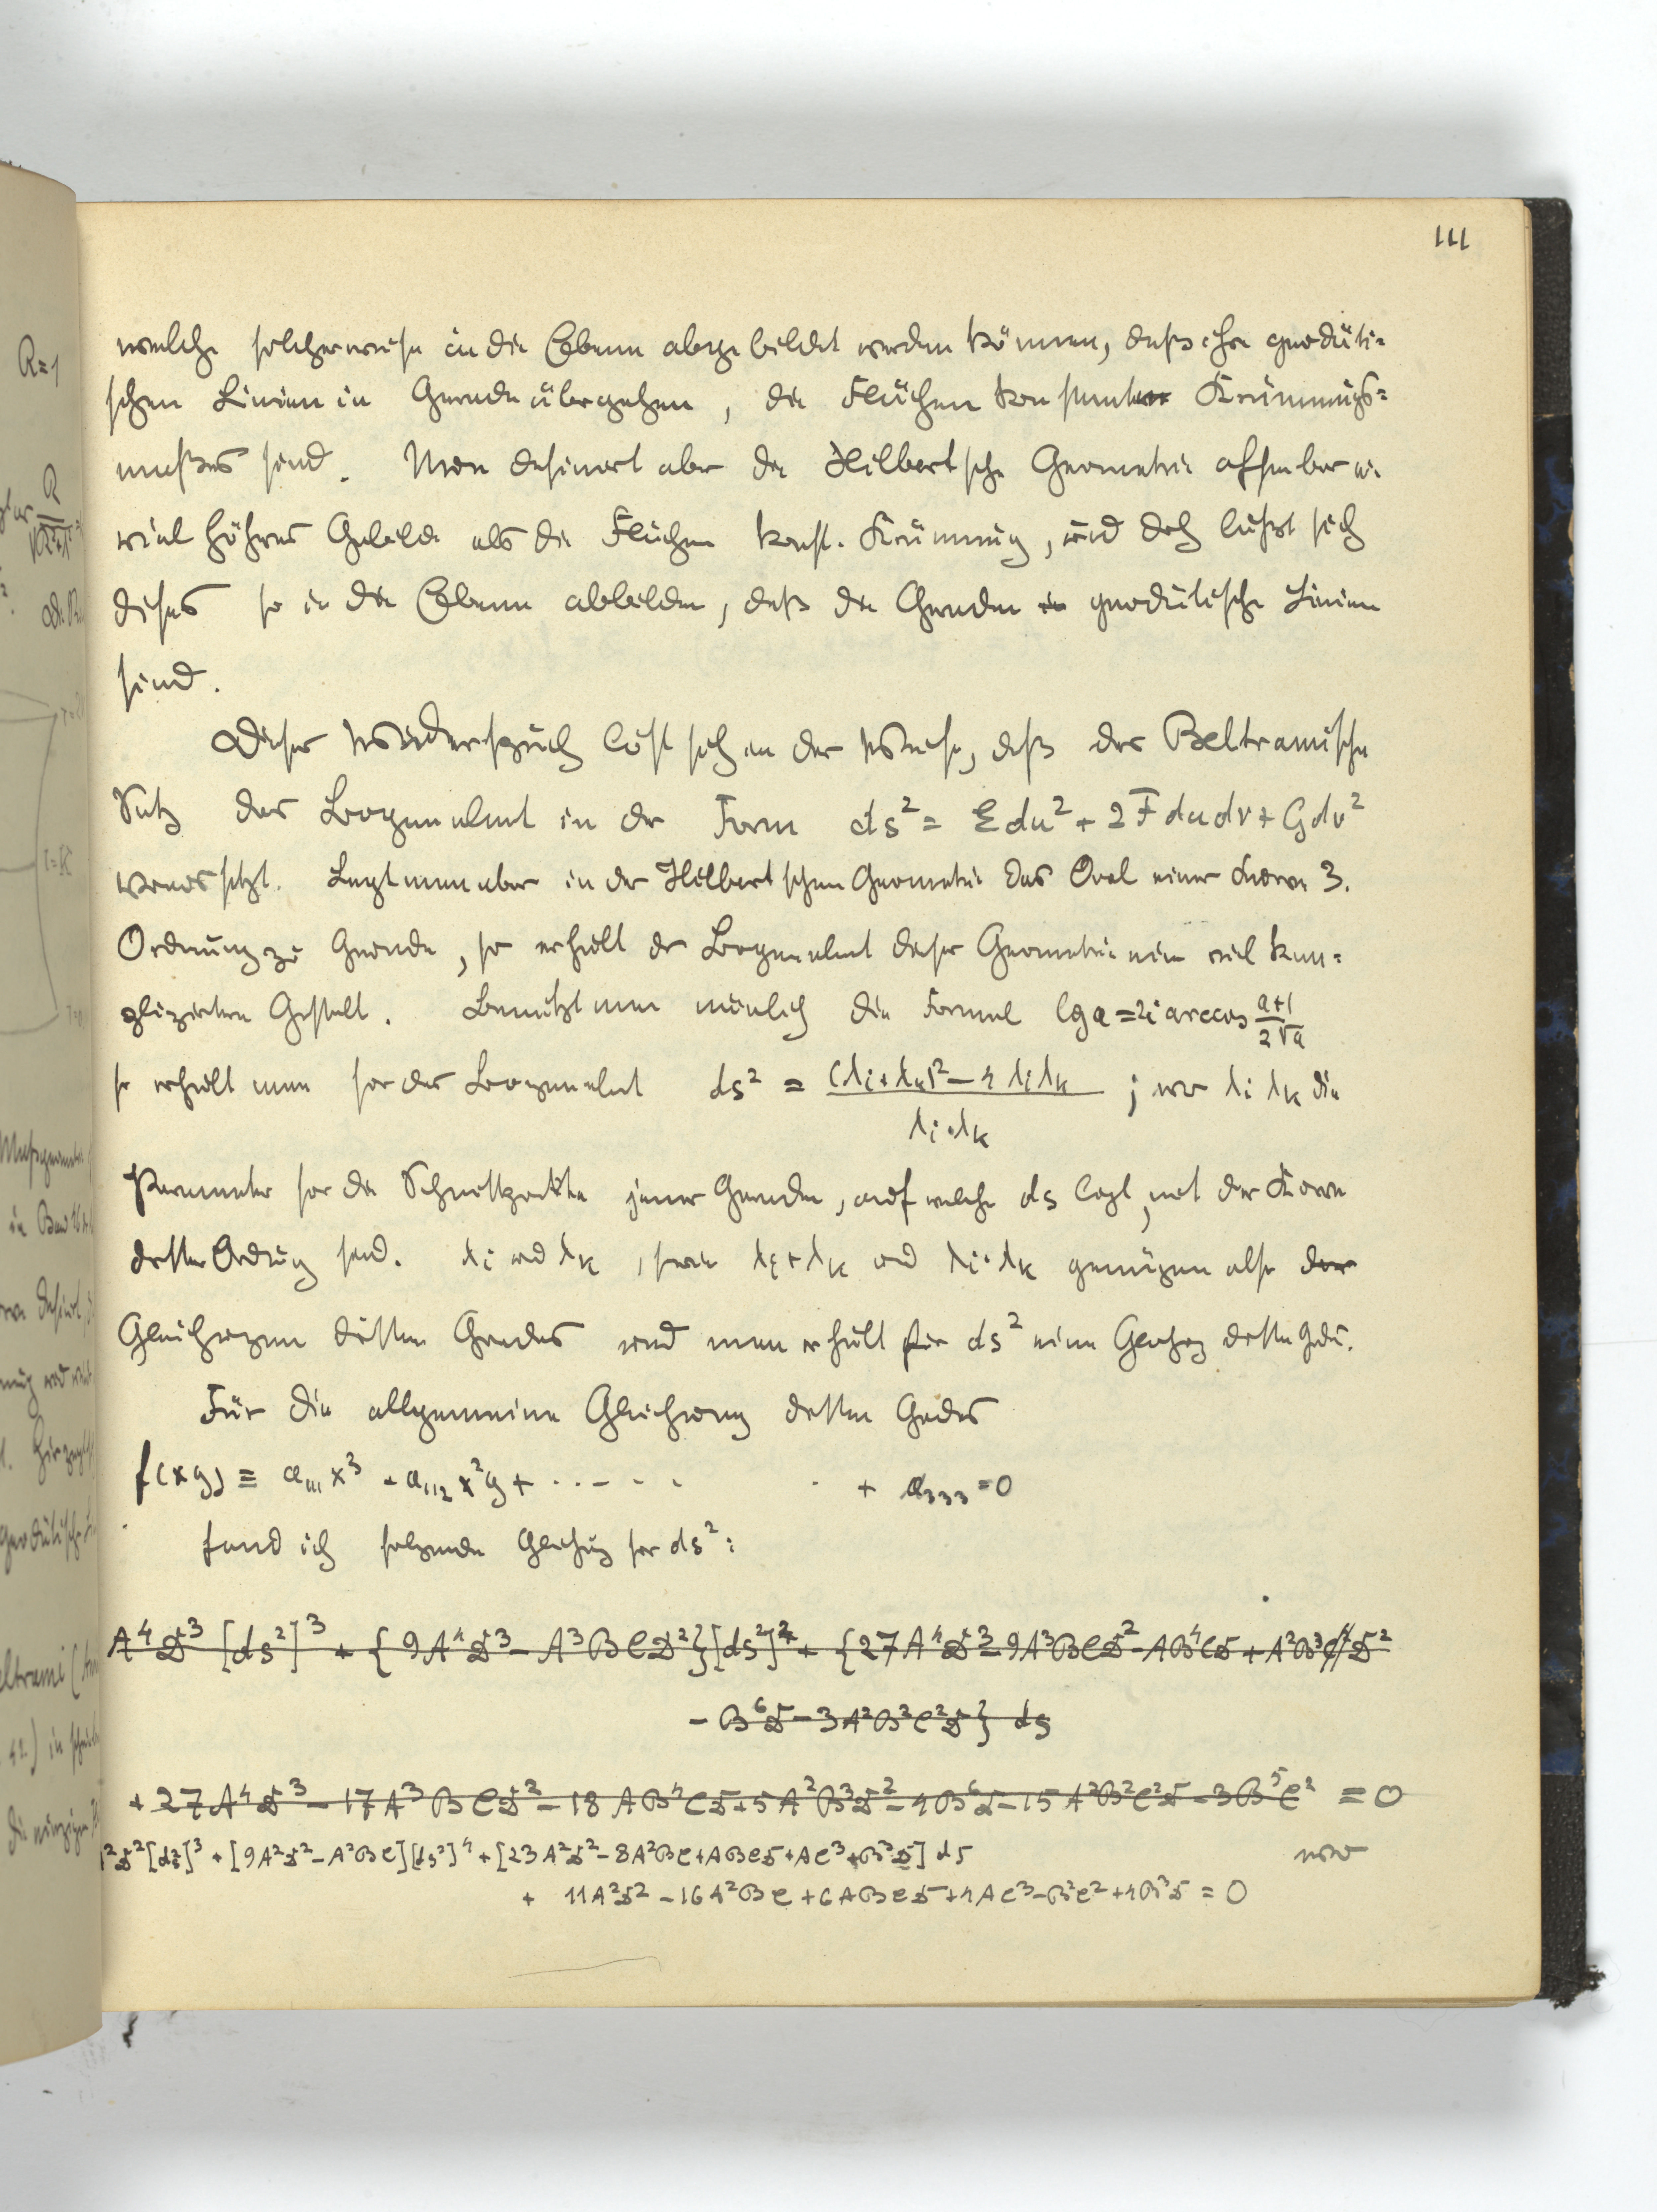 111
welche solcherweise in die Ebene abgebildet werden können, daß ihre geodäti-
schen Linien in Gerade übergehen, die Flächen konstanten Krümmungs-
maßes sind. Man definiert aber die Hilbertsche Geometrie offenbar ein
viel höheres Gebilde als die Flächen konst. Krümmung, und doch läßt sich
dieses so in die Ebene abbilden, daß die Geraden geodätische Linien
sind.
Dieser Widerspruch löst sich in der Weise, daß der Beltramische
Satz das Bogenelement in der Form ds² = Edu² + 2Fdudv + Gdv²
voraussetzt. Legt man aber in der Hilbertschen Geometrie das Oval einer Kurve 3.
Ordnung zu Grunde, so erhält das Bogenelement dieser Geometrie eine viel kom-
pliziertere Gestalt. Benützt man nämlich die Formel lg a = 2i arccos (a+1)/(2√a)
so erhält man für das Bogenelement ds² = ((λi+λk)² - 4λiλk)/(λi·λk) ; wo λi λk die
Parameter für die Schnittpunkte jener Geraden, auf welche ds liegt, mit der Kurve
dritter Ordnung sind. λi und λk, sowie λi+λk und λi·λk genügen also der
Gleichungen dritten Grades und man erhält für ds² eine Gleichung dritten Grades.
Für die allgemeine Gleichung dritten Grades
f(xy) ≡ a₁₁₁x³ + a₁₁₂x²y + ...... + a₃₃₃ = 0
fand ich folgende Gleichung für ds²:
A⁴D³[ds²]³ + {9A⁴D³ - A³BCD²}[ds²]² + {27A⁴D³ - 9A³BCD² - AB⁴CD + A²B³D²
- B⁶D - 3A²B²C²D} ds
+ 27A⁴D³ - 17A³BCD² - 18AB⁴CD + 5A²B³D² - 4B⁶D - 15A²B²C²D - 3B⁵C² = 0
A²D²[ds²]³ + [9A²D² - A²BC][ds²]⁴ + [23A²D² - 8A²BC + ABCD + AC³ + B³D] ds wo
+ 11A²D² - 16A²BC + 6ABCD + 4AC³ - B²C² + 4B³D = 0
R=1